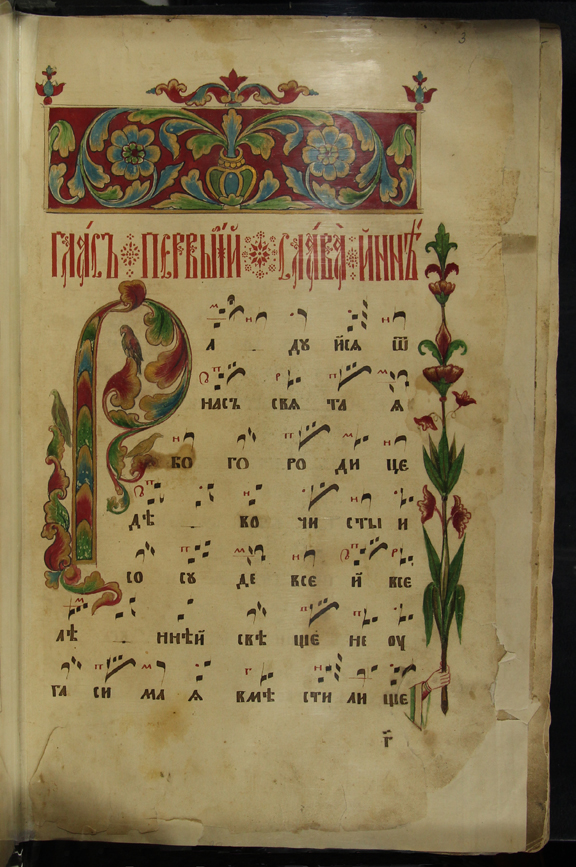 3
Гла́съ первый сла́ва и҆ннѣ
Р а ду йсѧ ѿ
насъ свѧ та ѧ
бо го ро ди це
дѣ во чи сты и
со су де все й все
лѣ нней свѣ ще не оу
га си ма ѧ вмѣ сти ли ще
г҃